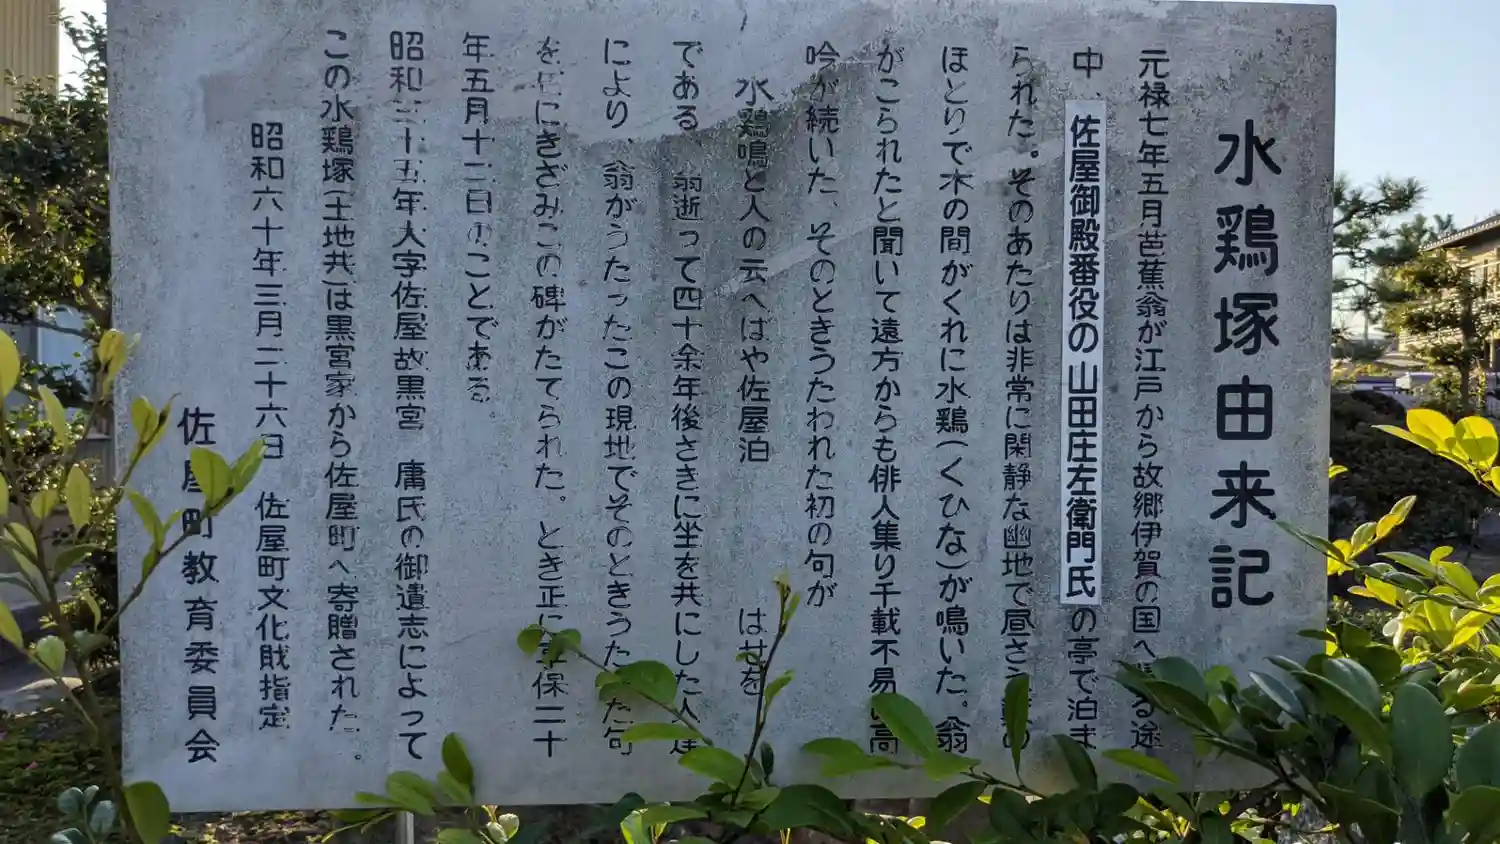 水鶏塚由来記
元禄七年五月芭蕉翁が江戸から故郷伊賀の国へ る途
中、佐屋御殿番役の山田庄左衛門氏の亭で泊ま
られた。そのあたりは非常に閑静な幽地で昼さえ の
ほとりで木の間がくれに水鶏(くひな)が鳴いた。翁
がこられたと聞いて遠方からも俳人集り千載不易 高
吟が続いた、そのときうたわれた初の句が
水鶏鳴と人の云へばや佐屋泊 はせを
である、翁逝って四十余年後さきに坐を共にした人達
により、翁がうたったこの現地でそのときうたった句
を石にきざみこの碑がたてられた。とき正に享保二十
年五月十二日のことである。
昭和三十五年大字佐屋故黒宮 庸氏の御遺志によって
この水鶏塚(土地共)は黒宮家から佐屋町へ寄贈された。
昭和六十年三月二十六日 佐屋町文化財指定
佐屋町教育委員会